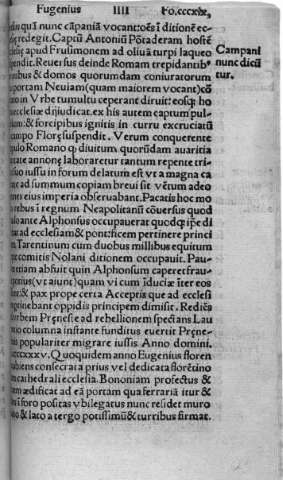 Eugenius IIII Fo.cccxlx,
quã nunc cãpaniã vocant:oẽs ĩ ditionẽ ec
redegit.Captũ Antoniũ Põtaderam hostẽ
apud Frusimonem ad oliuã turpi laqueo
Campani
pendit.Reuersus deinde Romam trepidantib⁹
nunc dicũ
ibus & domos quorumdam coniuratorum
tur.
portam Neuiam(quam maiorem vocant)cõ
to in Vrbe tumultu ceperant diruit: eosq; ho
ecclesiæ dijudicat. ex his autem captum pul
m: & forcipibus ignitis in curru excruciatũ
ampo Floræ suspendit. Verum conquerente
pulo Romano q; diuitum quorũdam auaritia
tate annonę laboraretur tantum repente tri
iussu in forum delatum est vt a magna ca
te ad summum copiam breui sit vẽtum adeo
nti eius imperia obseruabant. Pacatis hoc mo
rebus ĩ regnum Neapolitanũ cõuersus quod
ante Alphonsus occupauerat quodq; ipe di
ad ecclesiam & pont:ficem pertinere princi
Tarentinum cum duobus millibus equitum
comitis Nolani ditionem occupauit. Pau
mam abfuit quin Alphonsum caperet frau
genius(vt aiunt)quam vi cum ĩduciæ ĩter eos
& pax prope certa Acceptis que ad ecclesiã
tinebant oppidis principem dimisit. Rediẽs
rbem Pręnestę ad rebellionem spectans Lau
columna instante funditus euertit Pręne
populariter migrare iussis. Anno domini.
ccccxxxv. Quo quidem anno Eugenius floren
biens consecrata prius vel dedicata florẽtino
cathedrali ecclesia. Bononiam profectus &
m ædificat ad eã portam qua ferrariã itur &
foro positas vbi legatus nunc residet muro
& lato a tergo potissimũ & turribus firmat.